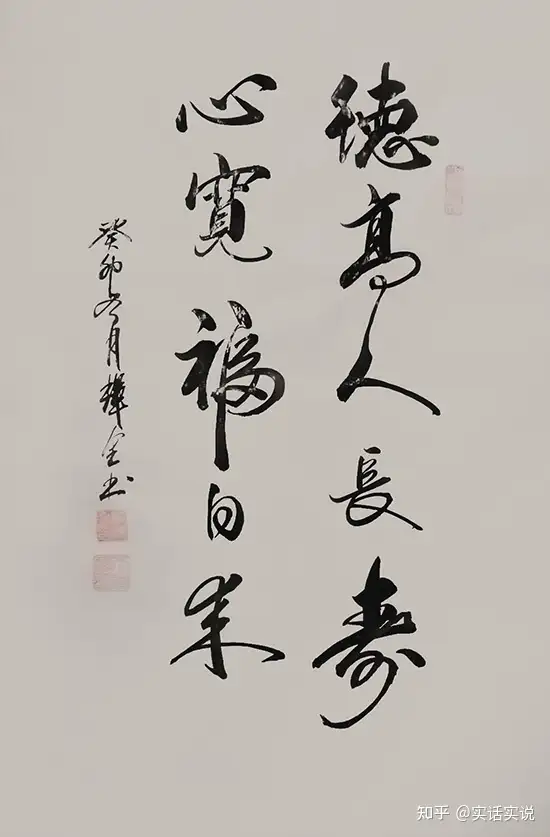 德高人長壽
心寬福自来
癸卯月书
知乎 @实话实说